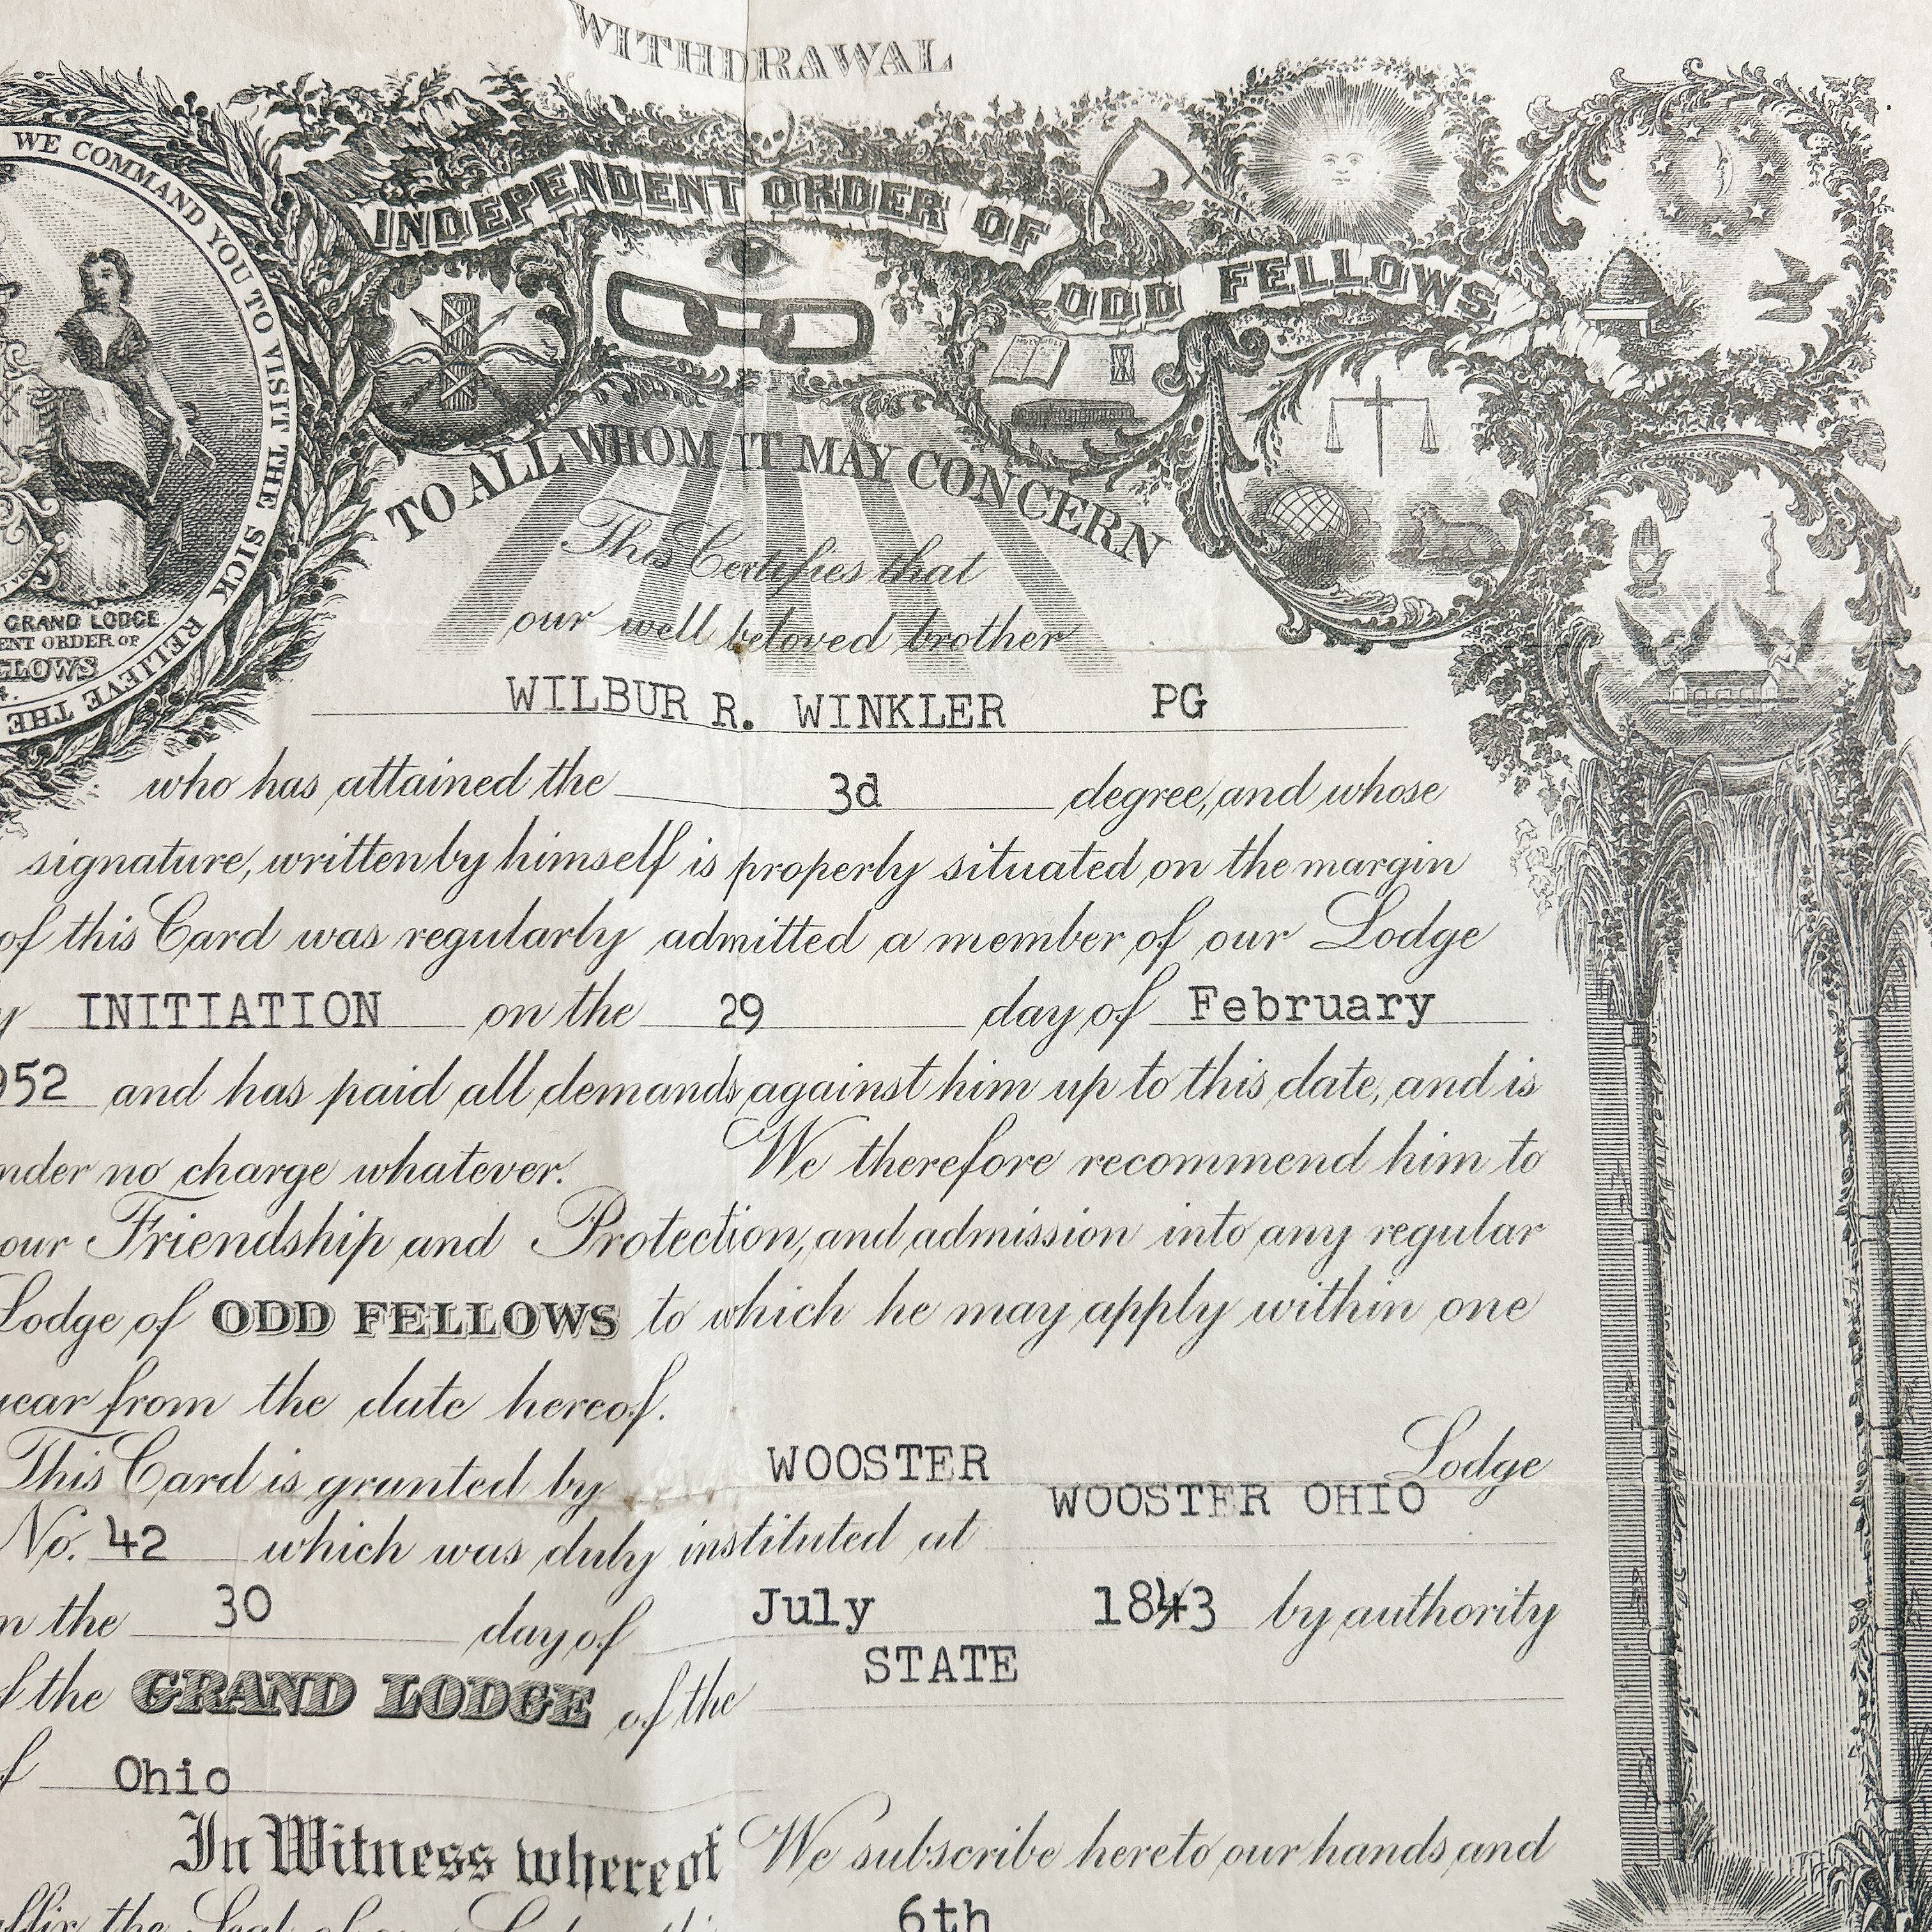 WITHDRAWAL
WE COMMAND YOU TO VISIT THE SICK RELIEVE THE
GRAND LODGE
ORDER OF
INDEPENDENT ORDER OF
ODD FELLOWS
HOLY BIBLE
TO ALL WHOM IT MAY CONCERN
This Certifies that
our well beloved brother
WILBUR R. WINKLER PG
who has attained the 3d degree, and whose
signature, written by himself is properly situated on the margin
of this Card was regularly admitted a member of our Lodge
INITIATION on the 29 day of February
952 and has paid all demands against him up to this date, and is
nder no charge whatever. We therefore recommend him to
our Friendship and Protection, and admission into any regular
Lodge of ODD FELLOWS to which he may apply within one
year from the date hereof.
This Card is granted by WOOSTER Lodge
No. 42 which was duly instituted at WOOSTER OHIO
n the 30 day of July 1843 by authority
f the GRAND LODGE of the STATE
f Ohio
In Witness whereof We subscribe hereto our hands and
the Seal of our 6th